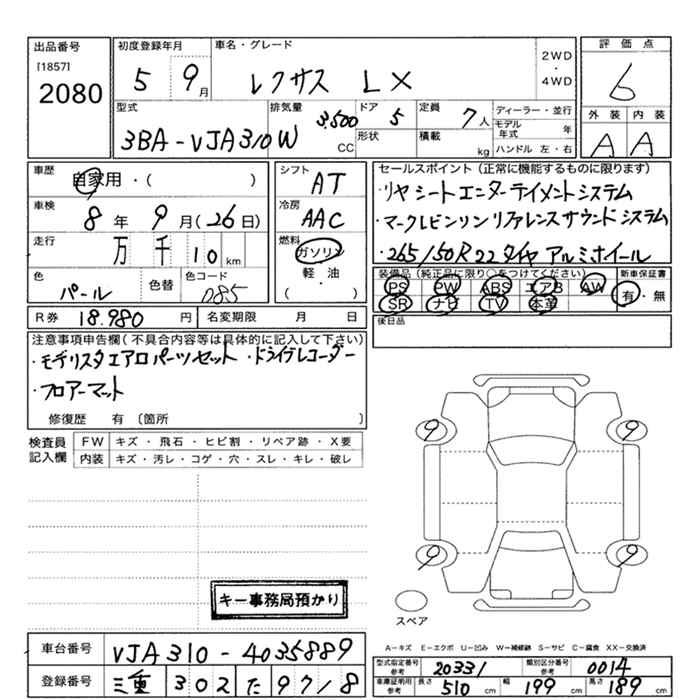 出品番号 初度登録年月 車名・グレード 2WD・4WD 評価点
[1857]
2080
5 9月 レクサス LX 6
型式 排気量 ドア 定員 ディーラー・並行 外装 内装
3BA-VJA310W 3,500CC 5 7人 モデル年式 年 A A
形状 積載 kg ハンドル 左・右
車歴 自家用・( ) シフト AT
車検 8年 9月(26日) 冷房 AAC
走行 万 千 10 km 燃料 ガソリン
軽・油
( )
色 パール 色替 色コード 085
R券 18,980円 名変期限 月 日
セールスポイント(正常に機能するものに限ります)
・リヤシートエンターテイメントシステム
・マークレビンソンリファレンスサウンドシステム
・265/50R22タイヤ アルミホイール
装備品(純正品に限り○をつけてください) 新車保証書
PS PW ABS エアB AW 有・無
SR ナビ TV 本革
後日品
注意事項申告欄(不具合内容等は具体的に記入して下さい)
・モデリスタエアロパーツセット ・ドライブレコーダー
・フロアーマット
修復歴 有 〔箇所 〕
検査員記入欄 FW キズ・飛石・ヒビ割・リペア跡・X要
内装 キズ・汚レ・コゲ・穴・スレ・キレ・破レ
9 9
9 9
キー事務局預かり
スペア
A-キズ E-エクボ U-凹み W-補修跡 S-サビ C-腐食 XX-交換済
車台番号 VJA310-4035889
登録番号 三重 302 た 97/8
型式指定番号 参考 20331 類別区分番号 参考 0014
車庫証明用 参考 長さ 510cm 幅 199cm 高さ 189cm